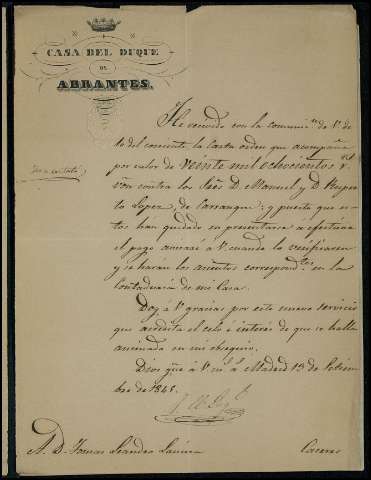 CASA DEL DUQUE
DE
ABRANTES.
He recivido con la comunic.on de V. de
del corriente la Carta orden que acompaña
por valor de veinte mil ochocientos r.s
von contra los Sres D. Manuel y D.
Lopez, de Carranque; y puesto que es-
tos han quedado en presentarse a efectuar
el pago, avisará a V. cuando lo verifiquen
y se harán los asientos correspond.tes en la
Contaduría de mi Casa.
Doy á V. gracias por este nuevo servicio
que acredita el celo é interés de que se halla
animado en mi obsequio.
Dios gue á V. m.s a.s Madrid 13 de Setiem-
bre de 184
A. D. Tomas Leandro
Caceres